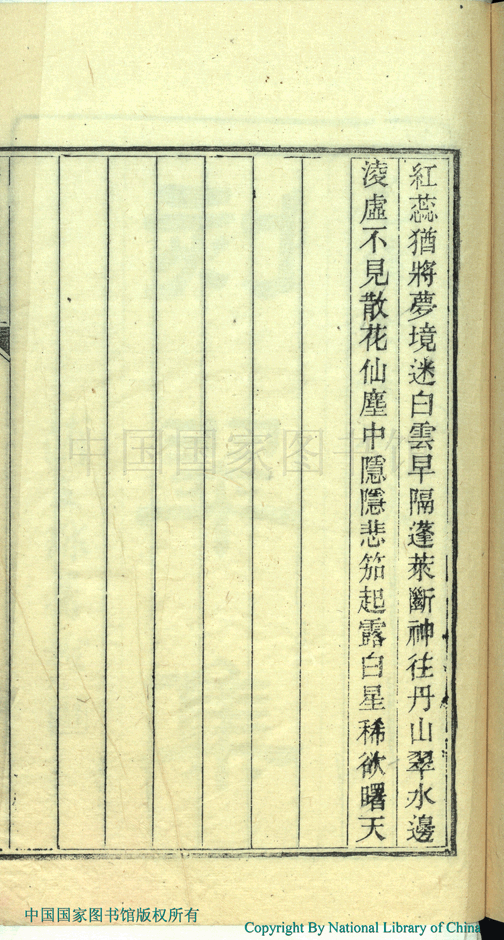 紅蕊猶將夢境迷白雲早隔蓬萊斷神往丹山翠水邊
淩虛不見散花仙塵中隱隱悲笳起露白星稀欲曙天
中国国家图书馆
中国国家图书馆版权所有
Copyright By National Library of China